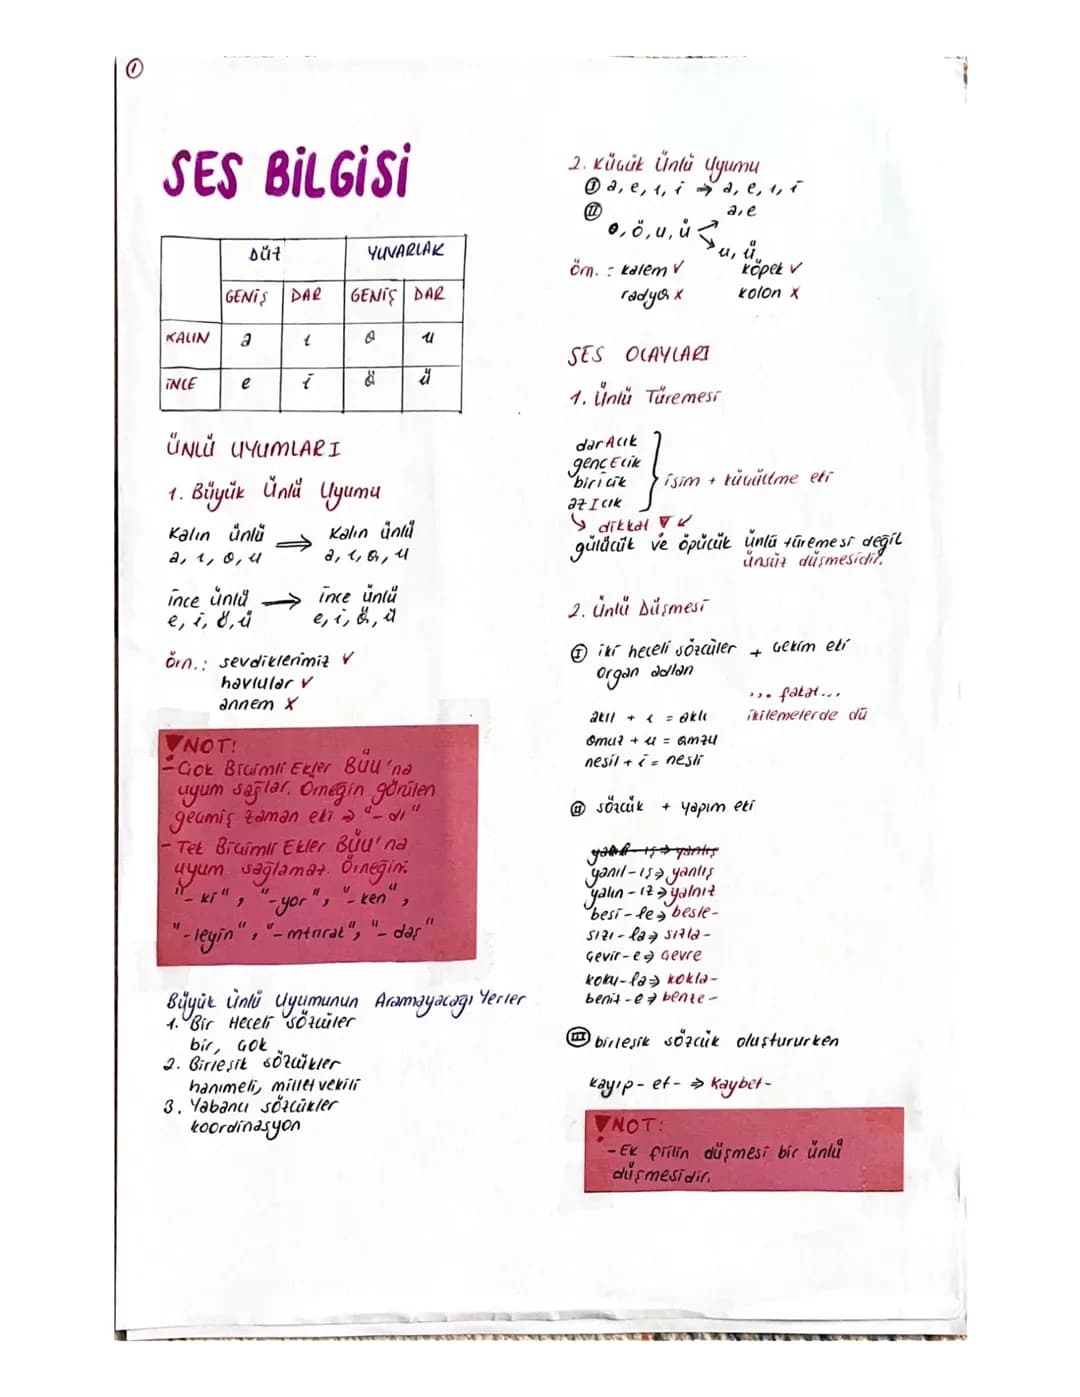 1
SES BİLGİSİ
DÜZ YUVARLAK
GENİŞ DAR GENİŞ DAR
KALIN a ı o u
İNCE e i ö ü
ÜNLÜ UYUMLARI
1. Büyük Ünlü Uyumu
Kalın ünlü ⟹ Kalın ünlü
a, ı, o, u a, ı, o, u
ince ünlü → ince ünlü
e, i, ö, ü e, i, ö, ü
örn.: sevdiklerimiz ✓
havlular ✓
annem x
NOT!
- Çok Biçimli Ekler BÜU'na
uyum sağlar. Örneğin görülen
geçmiş zaman eki → "-dı"
- Tek Biçimli Ekler BÜU'na
uyum sağlamaz. Örneğin:
"-ki", "-yor", "-ken",
"-leyin", "-mtırak", "-daş"
Büyük Ünlü Uyumunun Aramayacağı Yerler
1. Bir Heceli sözcüler
bir, çok
2. Birleşik sözcükler
hanımeli, milletvekili
3. Yabancı sözcükler
koordinasyon
2. Küçük Ünlü Uyumu
I a, e, ı, i → a, e, ı, i
II a, e
o, ö, u, ü
u, ü
örn. : kalem ✓ köpek ✓
radyo x kolon x
SES OLAYLARI
1. Ünlü Türemesi
darAcık
gençEcik
biricik isim + küçültme eki
azIcık
dikkat
gülücük ve öpücük ünlü türemesi değil
ünsüz düşmesidir.
2. Ünlü Düşmesi
I iki heceli sözcüler + çekim eki
organ adları
... fakat...
akıl + ı = aklı ikilemelerde dü
omuz + u = omzu
nesil + i = nesli
II sözcük + yapım eki
yanıl-ış → yanlış
yalın-ız → yalnız
besi-le → besle-
sızı-la → sızla-
çevir-e → çevre
koku-la → kokla-
beniz-e → benze-
III birleşik sözcük oluştururken
kayıp-et- ⇒ kaybet-
NOT:
- Ek fiilin düşmesi bir ünlü
düşmesidir.